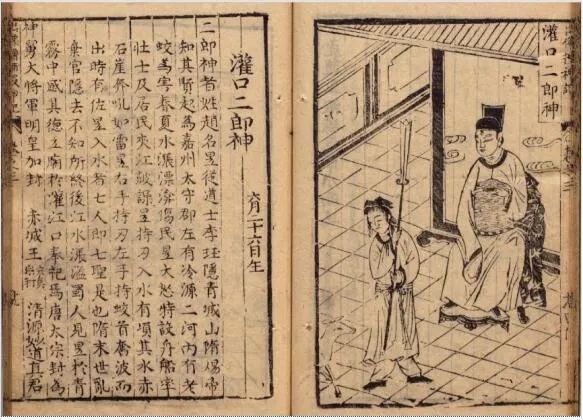 灌口二郎神
灌口二郎神 六月二十六日生
二郎神者姓趙名昱從道士李珏隱青城山隋煬帝
知其賢起為嘉州太守郡左有冷源二河內有老
蛟為害春夏水漲漂渰傷民昱大怒特設舟船率
壯士及居民夾江鼓譟昱持刃入水有頃其水赤
石崖奔吼如雷昱右手持刃左手持蛟首奮波而
出時有佐昱入水者七人即七聖是也隋末世亂
棄官隱去不知所終後江水漲溢蜀人見昱於青
霧中感其德立廟於灌江口奉祀焉唐太宗封為
神勇大將軍明皇加封 赤城王 清源妙道真君